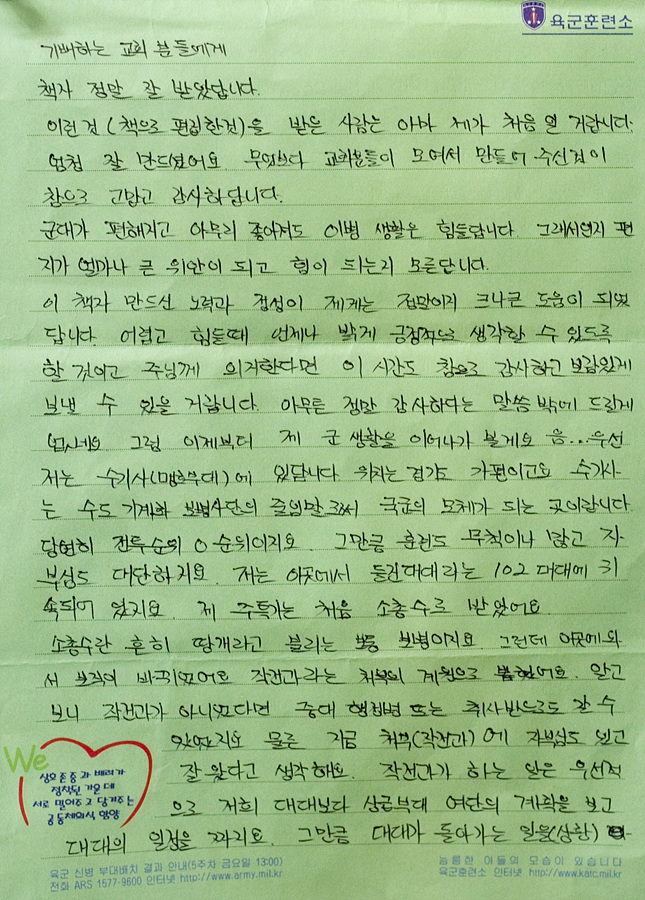 육군훈련소
기뻐하는 교회 분들에게
책자 정말 잘 받았답니다.
이런 건 (책으로 편집한것)을 받은 사람은 아마 제가 처음 일 거랍니다.
엄청 잘 만드셨어요. 무엇보다 교회분들이 모여서 만들어 주신것이
참으로 고맙고 감사하답니다.
군대가 편해지고 아무리 좋아져도 이병 생활은 힘들답니다. 그래서인지 편
지가 얼마나 큰 위안이 되고 힘이 되는지 모른답니다.
이 책자 만드신 노력과 정성이 제게는 정말이지 크나큰 도움이 되었
답니다. 어렵고 힘들때 언제나 밝게 긍정적으로 생각할 수 있도록
할 것이고 주님께 의지한다면 이 시간도 참으로 감사하고 보람있게
보낼 수 있을 거랍니다. 아무튼 정말 감사하다는 말씀 밖에 드릴게
없네요. 그럼 이제부터 제 군 생활을 이어나가 볼게요 음...우선
저는 수기사(맹호부대)에 있답니다 위치는 경기도 가평이고요 수기사
는 수도 기계화 보병사단의 줄임말로써 국군의 모체가 되는 곳이랍니다.
당연히 전투순위 0순위이지요. 그만큼 훈련도 무척이나 많고 자
부심도 대단하지요. 저는 이곳에서 번개대대라는 102 대대에 귀
속되어 있지요. 제 주특기는 처음 소총수로 받았어요.
소총수란 흔히 땅개라고 불리는 보통 보병이지요. 그런데 이곳에와
서 보직이 바뀌었어요 작전과라는 처부의 계원으로 뽑혔어요. 알고
보니 작전과가 아니었다면 중대 행정병 또는 취사반으로도 갈 수
있었지요 물론 지금 처부(작전과)에 자부심도 있고
잘 왔다고 생각해요. 작전과가 하는 일은 우선적
으로 저희 대대보다 상급부대 여단의 계획을 보고
대대의 일정을 짜지요. 그만큼 대대가 돌아가는 일을(상황)
We
상호존중과 배려가
정착된 가운데
서로 밀어주고 당겨주는
공동체의식 함양
육군 신병 부대배치 결과 안내(5주차 금요일 13:00)
전화 ARS 1577-9600 인터넷 http://www.army.mil.kr
늠름한 아들의 모습이 있습니다
육군훈련소 인터넷 http://www.katc.mil.kr